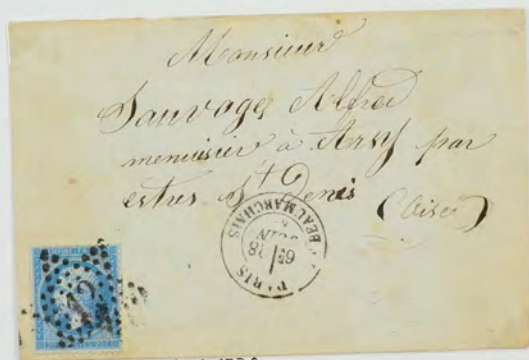 Monsieur
Sauvage Alfred
menuisier à Arsy par
estres St Denis
(Oise)
PARIS
BEAUMARCHAIS
JUIN
12